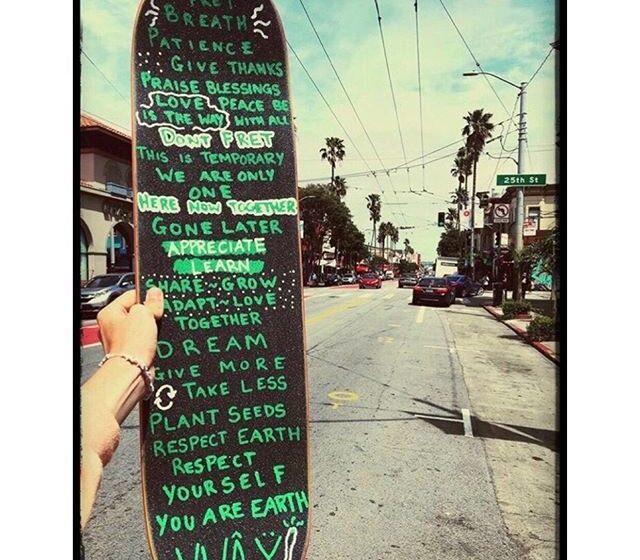 BREATH
PATIENCE
GIVE THANKS
PRAISE BLESSINGS
LOVE PEACE BE
IS THE WAY WITH ALL
DON'T FRET
THIS IS TEMPORARY
WE ARE ONLY
ONE
HERE NOW TOGETHER
GONE LATER
APPRECIATE
LEARN
SHARE~GROW
ADAPT~LOVE
TOGETHER
DREAM
GIVE MORE
TAKE LESS
PLANT SEEDS
RESPECT EARTH
RESPECT
YOURSELF
YOU ARE EARTH
25th St